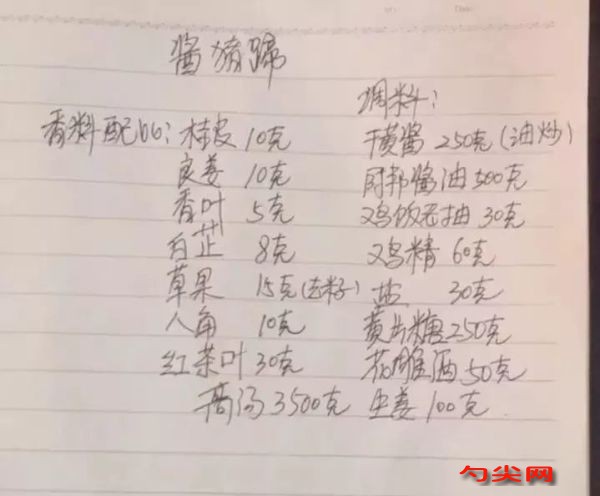 酱猪蹄
调料:
香料配比: 桂皮 10克 干黄酱 250克(油炒)
良姜 10克 厨邦酱油500克
香叶 5克 鸡饭老抽 30克
白芷 8克 鸡精 60克
草果 15克(去籽) 盐 30克
八角 10克 黄片糖250克
红茶叶 30克 花雕酒 50克
高汤 3500克 生姜 100克
勺尖网